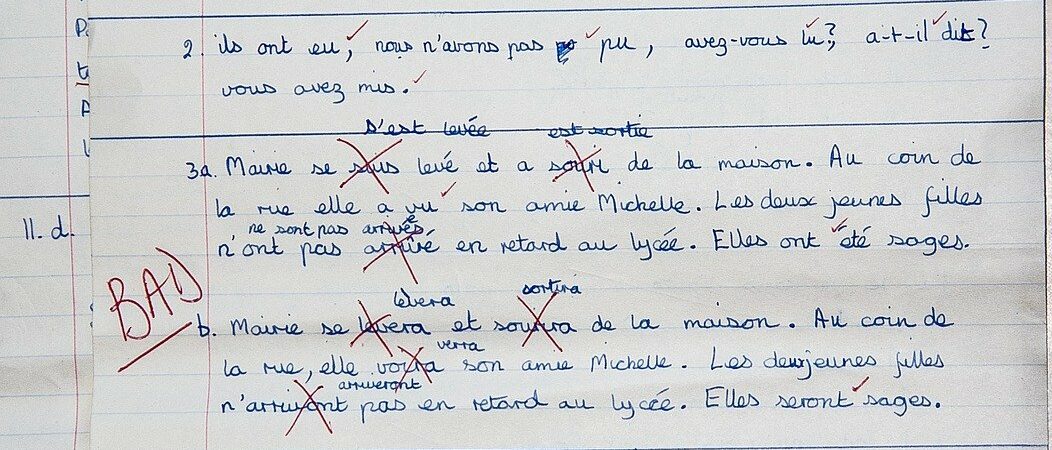 2. ils ont eu, nous n'avons pas pu, avez-vous lu? a-t-il dit?
vous avez mis.
s'est levée est sortie
3a. Mairie se suis levé et a souri de la maison. Au coin de
la rue elle a vu son amie Michelle. Les deux jeunes filles
ne sont pas arrivées
n'ont pas arrivé en retard au lycée. Elles ont été sages.
11. d.
BAD
lèvera sortira
b. Mairie se levera et sourira de la maison. Au coin de
verra
la rue, elle voira son amie Michelle. Les deuxjeunes filles
arriveront
n'arrivont pas en retard au lycée. Elles seront sages.